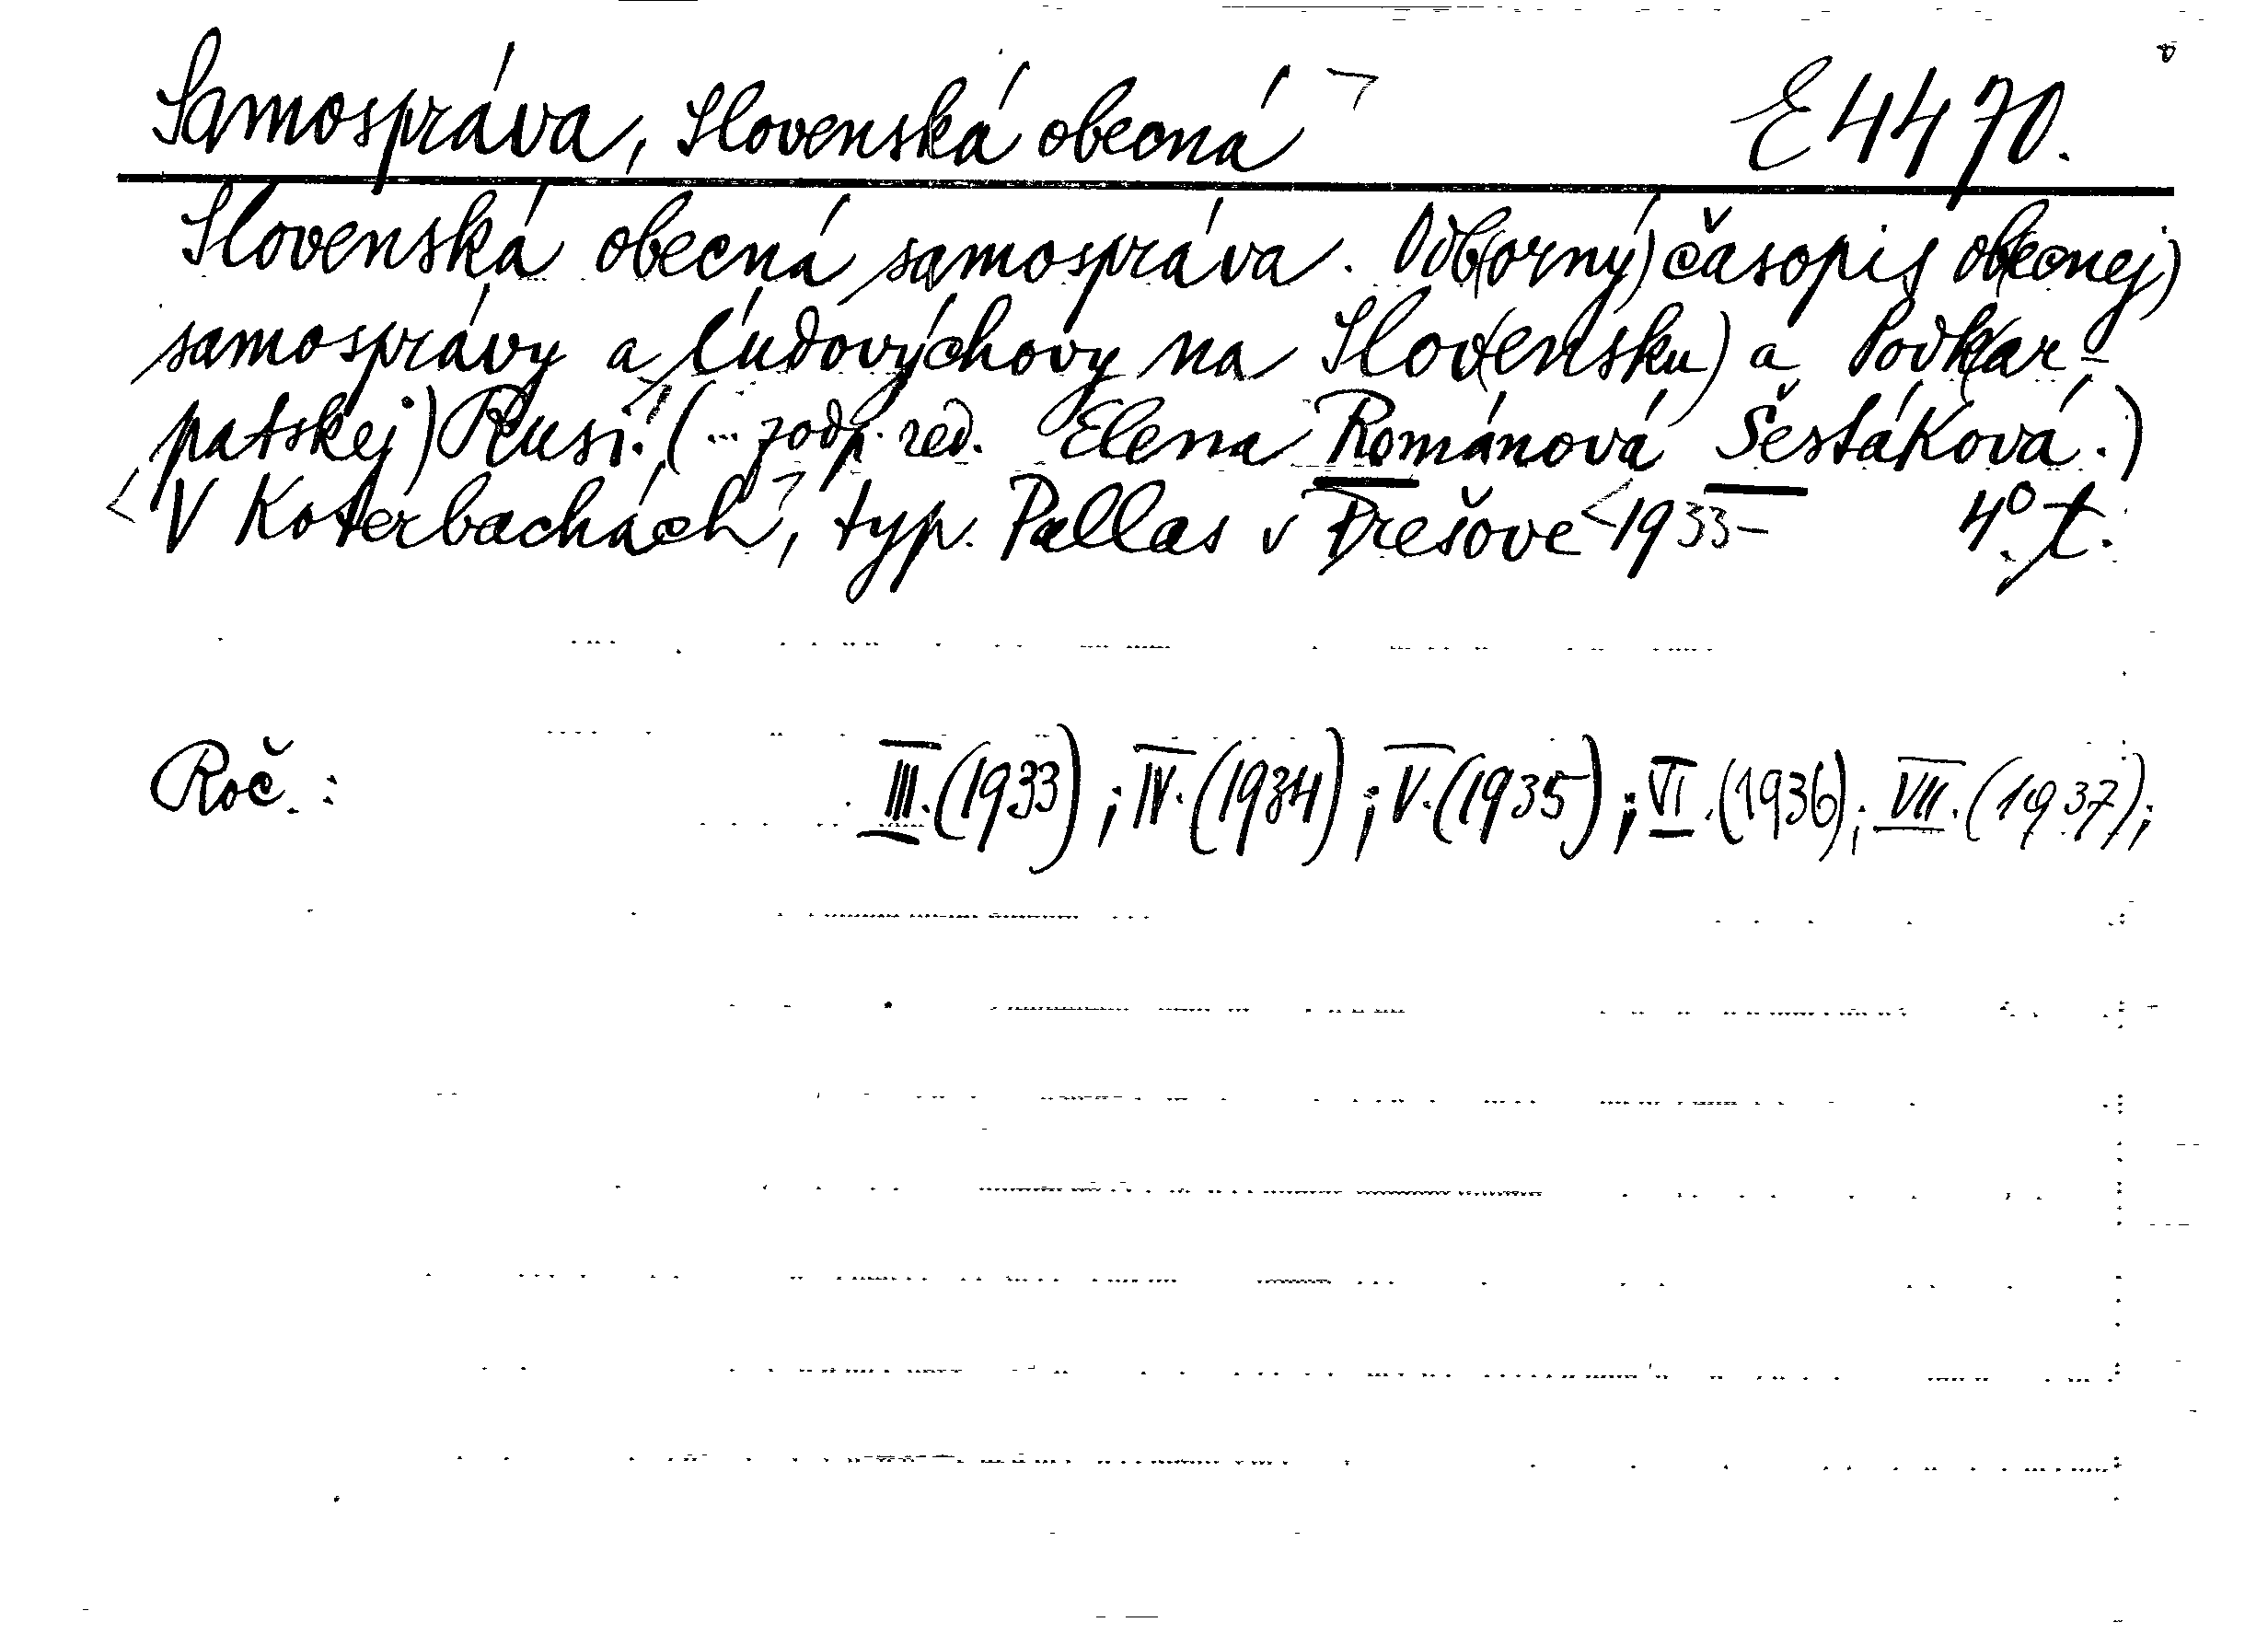 Samospráva, Slovenská obecná E 4470.
Slovenská obecná samospráva. Odb(orný) časopis ob(ecnej)
samosprávy a ľudovýchovy na Slov(ensku) a Podk(ar-
patskej) Rusi. (... zodp. red. Elena Románová Šestáková.)
V Koterbachách, typ. Pallas v Prešove 1933- 4° t.
Roč.: III. (1933); IV. (1934); V. (1935); VI. (1936); VII. (1937);